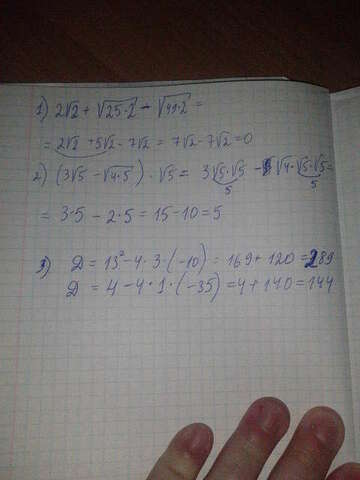 1) 2√2 + √25·2 - √49·2 =
= 2√2 + 5√2 - 7√2 = 7√2 - 7√2 = 0
2) (3√5 - √4·5) · √5 = 3√5·√5 - √4·√5·√5=
5 5
= 3·5 - 2·5 = 15 - 10 = 5
3) D = 13² - 4·3·(-10) = 169 + 120 = 289
D = 4 - 4·1·(-35) = 4 + 140 = 144